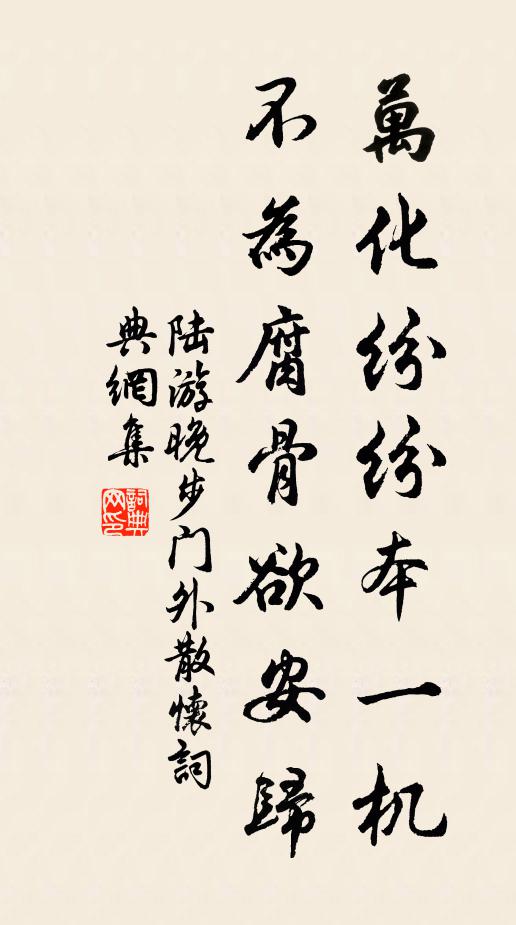 萬化纷纷本一机
不為腐骨欲安歸
陆游晚步门外散懷詞
典網集
詞典网印